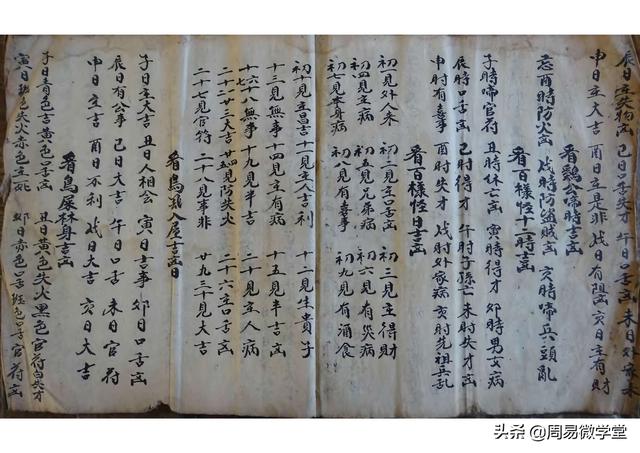 辰日主失物凶 巳日口舌失才 午日口舌凶 未日外家本
申日主大吉 酉日主是非 戌日有阻凶 亥日主有財
看鷄公啼時吉凶
忘酉時防火凶 戌時防盗賊凶 亥時啼兵頭亂
看百樣怪十二時吉凶
子時啼官符 丑時休亡凶 寅時得才 卯時男女病
辰時口舌凶 巳時得才 午時子孫亡 未時失才凶
申時有喜事 酉時失才 戌時外家病 亥時先祖兵乱
看百樣怪日吉凶
初一見外人来 初二見主口舌凶 初三見主得財
初四見主病 初五見兄弟病 初六見有災病
初七見本身病 初八見有喜事 初九見有酒食
初十見主昌吉 十一見主人吉利 十二見生貴子
十三見無事 十四見主有病 十五見半吉凶
十六十七十八無事 十九見半吉 二十見主人病
二十二廿三大吉 廿四廿五見防失火 二十六主口舌凶
二十七見官符 二十八見事非 廿九三十見大吉
看鳥鷄入屋吉凶日
子日主大吉 丑日人相会 寅日吉事 卯日口舌凶
辰日有公事 巳日大吉 午日口舌 未日官符
申日主吉 酉日不利 戌日大吉 亥日大吉
看鳥屎林身吉凶
子日青色吉黄色口舌凶 丑日黄色失火黑色官符白失才
寅日班色失火赤色主死 卯日赤色口舌班色口舌官符凶
头条 @周易微学堂